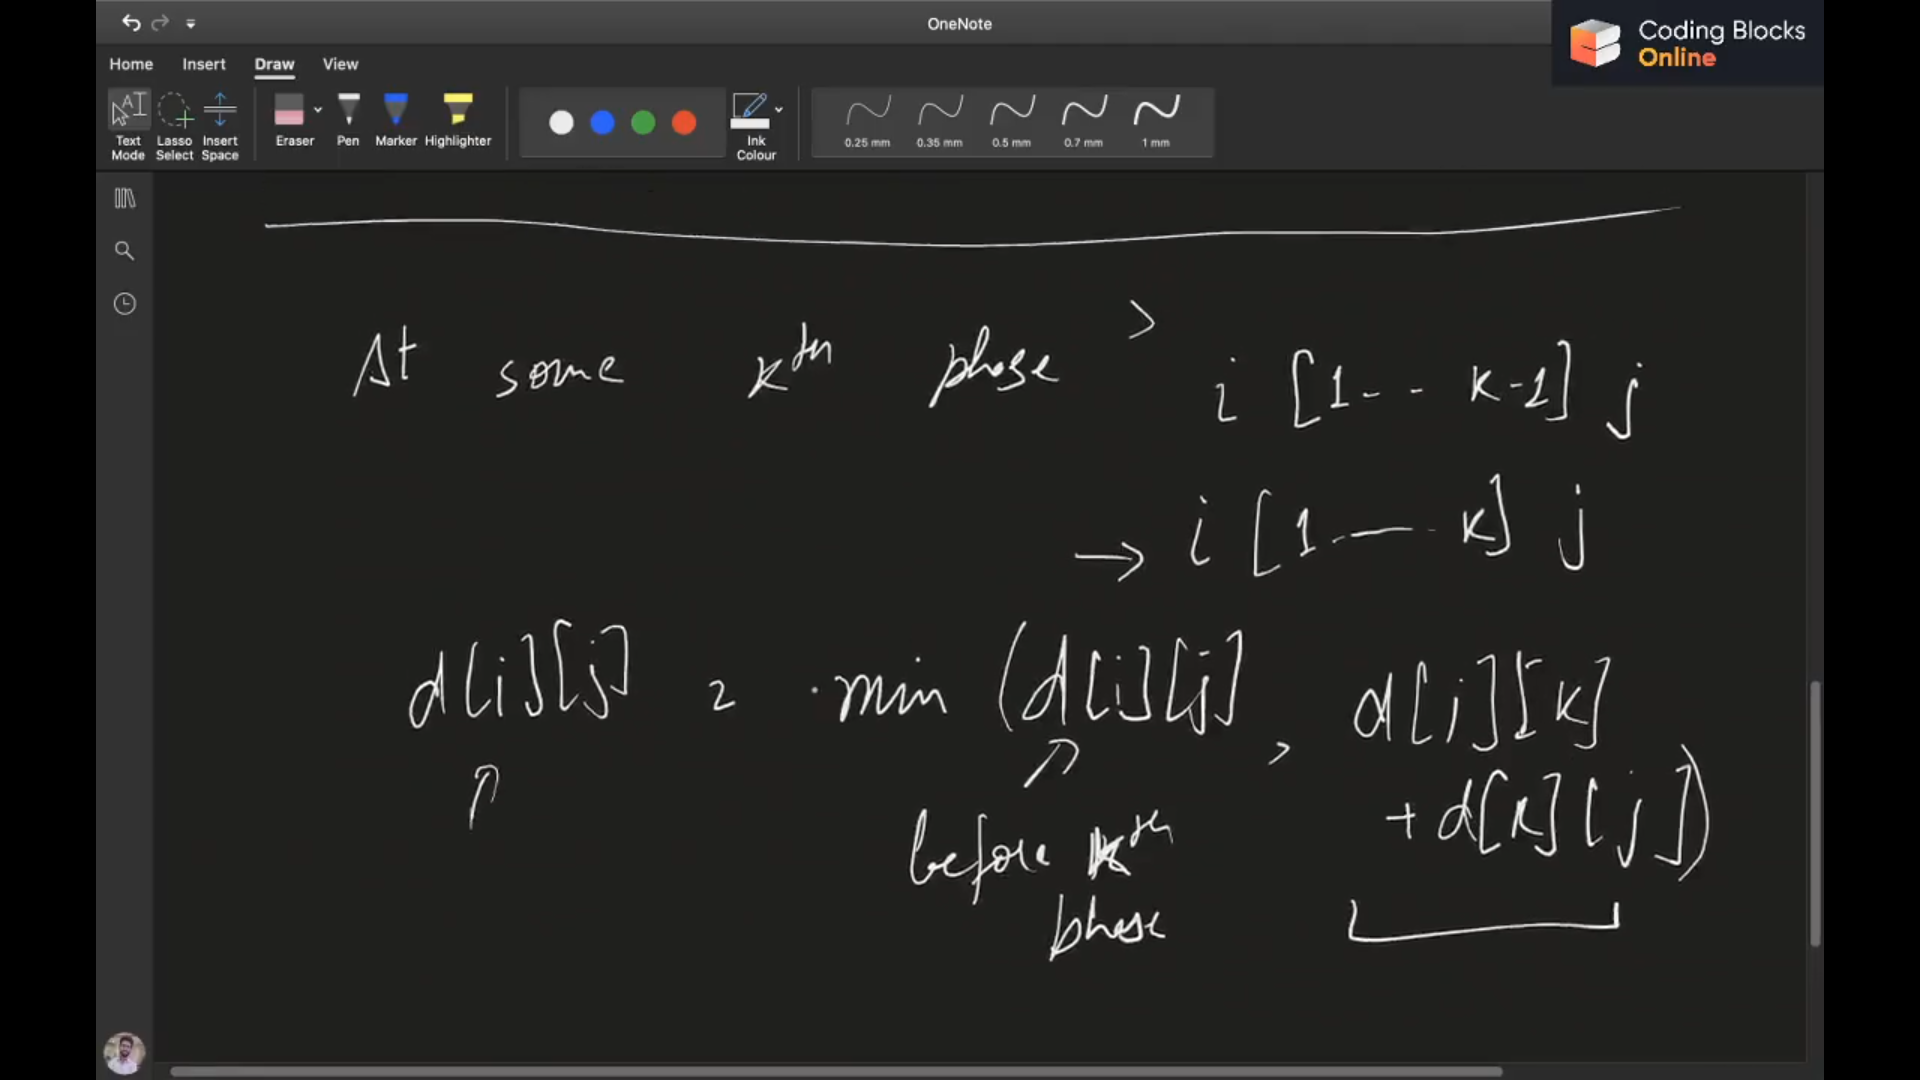 OneNote
Coding Blocks
Online
Home Insert Draw View
Text Mode
Lasso Select
Insert Space
Eraser
Pen
Marker
Highlighter
Ink Colour
0.25 mm 0.35 mm 0.5 mm 0.7 mm 1 mm
At some kth phase >
i [1-- k-1] j
→ i [1-— - k] j
d[i][j] = min (d[i][j], d[i][k]
+ d[k][j])
before kth
phase